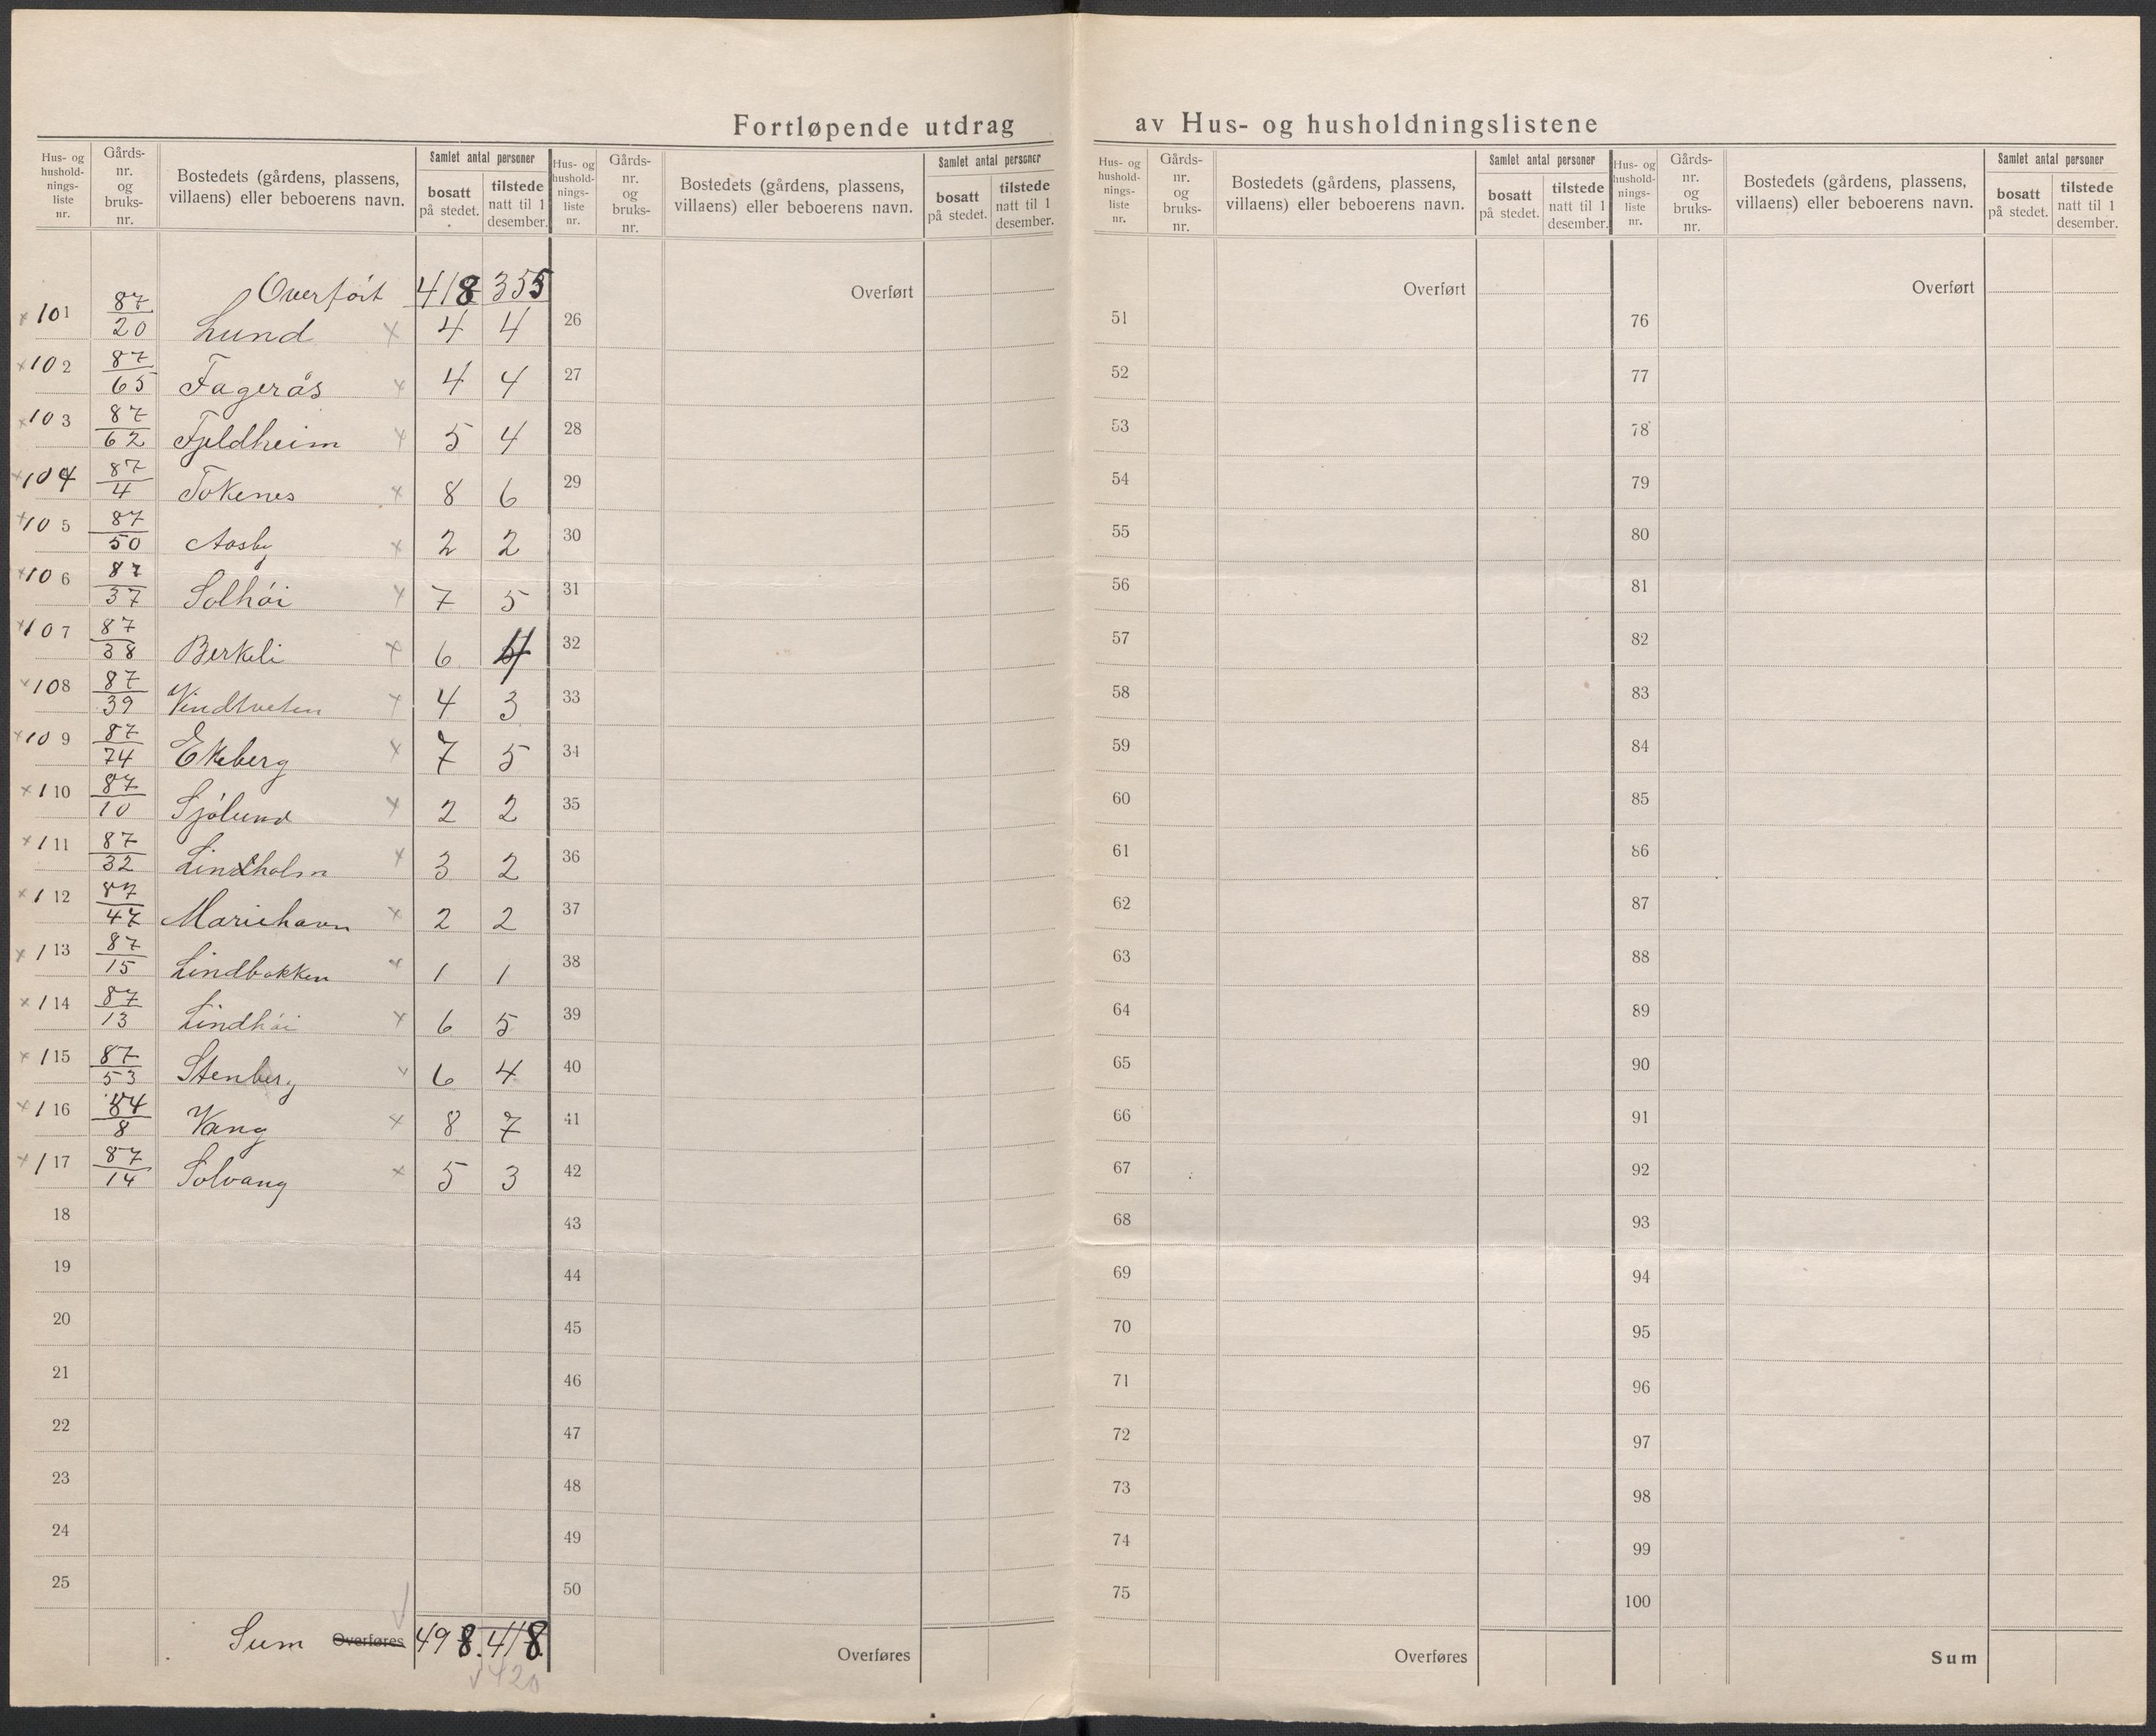 Fortløpende utdrag av Hus- og husholdningslistene
Hus- og hushold-nings-liste nr. Gårds-nr. og bruks-nr. Bostedets (gårdens, plassens, villaens) eller beboerens navn. Samlet antal personer bosatt på stedet. tilstede natt til 1 desember.
Overført 418 355
101 87/20 Lund x 4 4
102 87/65 Fagerås x 4 4
103 87/62 Fjeldheim x 5 4
104 87/4 Tokenes x 8 6
105 87/50 Aasby x 2 2
106 87/37 Solhöi x 7 5
107 87/38 Berkeli x 6 4
108 87/39 Vindtveten x 4 3
109 87/74 Ekeberg x 7 5
110 87/10 Sjölund x 2 2
111 87/32 Lindholm x 3 2
112 87/47 Mariehavn x 2 2
113 87/15 Lindbakken x 1 1
114 87/13 Lindhöi x 6 5
115 87/53 Stenberg x 6 4
116 84/8 Vang x 8 7
117 87/14 Solvang x 5 3
18
19
20
21
22
23
24
25
Sum Overføres 498. 418
420
Hus- og hushold-nings-liste nr. Gårds-nr. og bruks-nr. Bostedets (gårdens, plassens, villaens) eller beboerens navn. Samlet antal personer bosatt på stedet. tilstede natt til 1 desember.
Overført
26
27
28
29
30
31
32
33
34
35
36
37
38
39
40
41
42
43
44
45
46
47
48
49
50
Overføres
Hus- og hushold-nings-liste nr. Gårds-nr. og bruks-nr. Bostedets (gårdens, plassens, villaens) eller beboerens navn. Samlet antal personer bosatt på stedet. tilstede natt til 1 desember.
Overført
51
52
53
54
55
56
57
58
59
60
61
62
63
64
65
66
67
68
69
70
71
72
73
74
75
Overføres
Hus- og hushold-nings-liste nr. Gårds-nr. og bruks-nr. Bostedets (gårdens, plassens, villaens) eller beboerens navn. Samlet antal personer bosatt på stedet. tilstede natt til 1 desember.
Overført
76
77
78
79
80
81
82
83
84
85
86
87
88
89
90
91
92
93
94
95
96
97
98
99
100
Sum